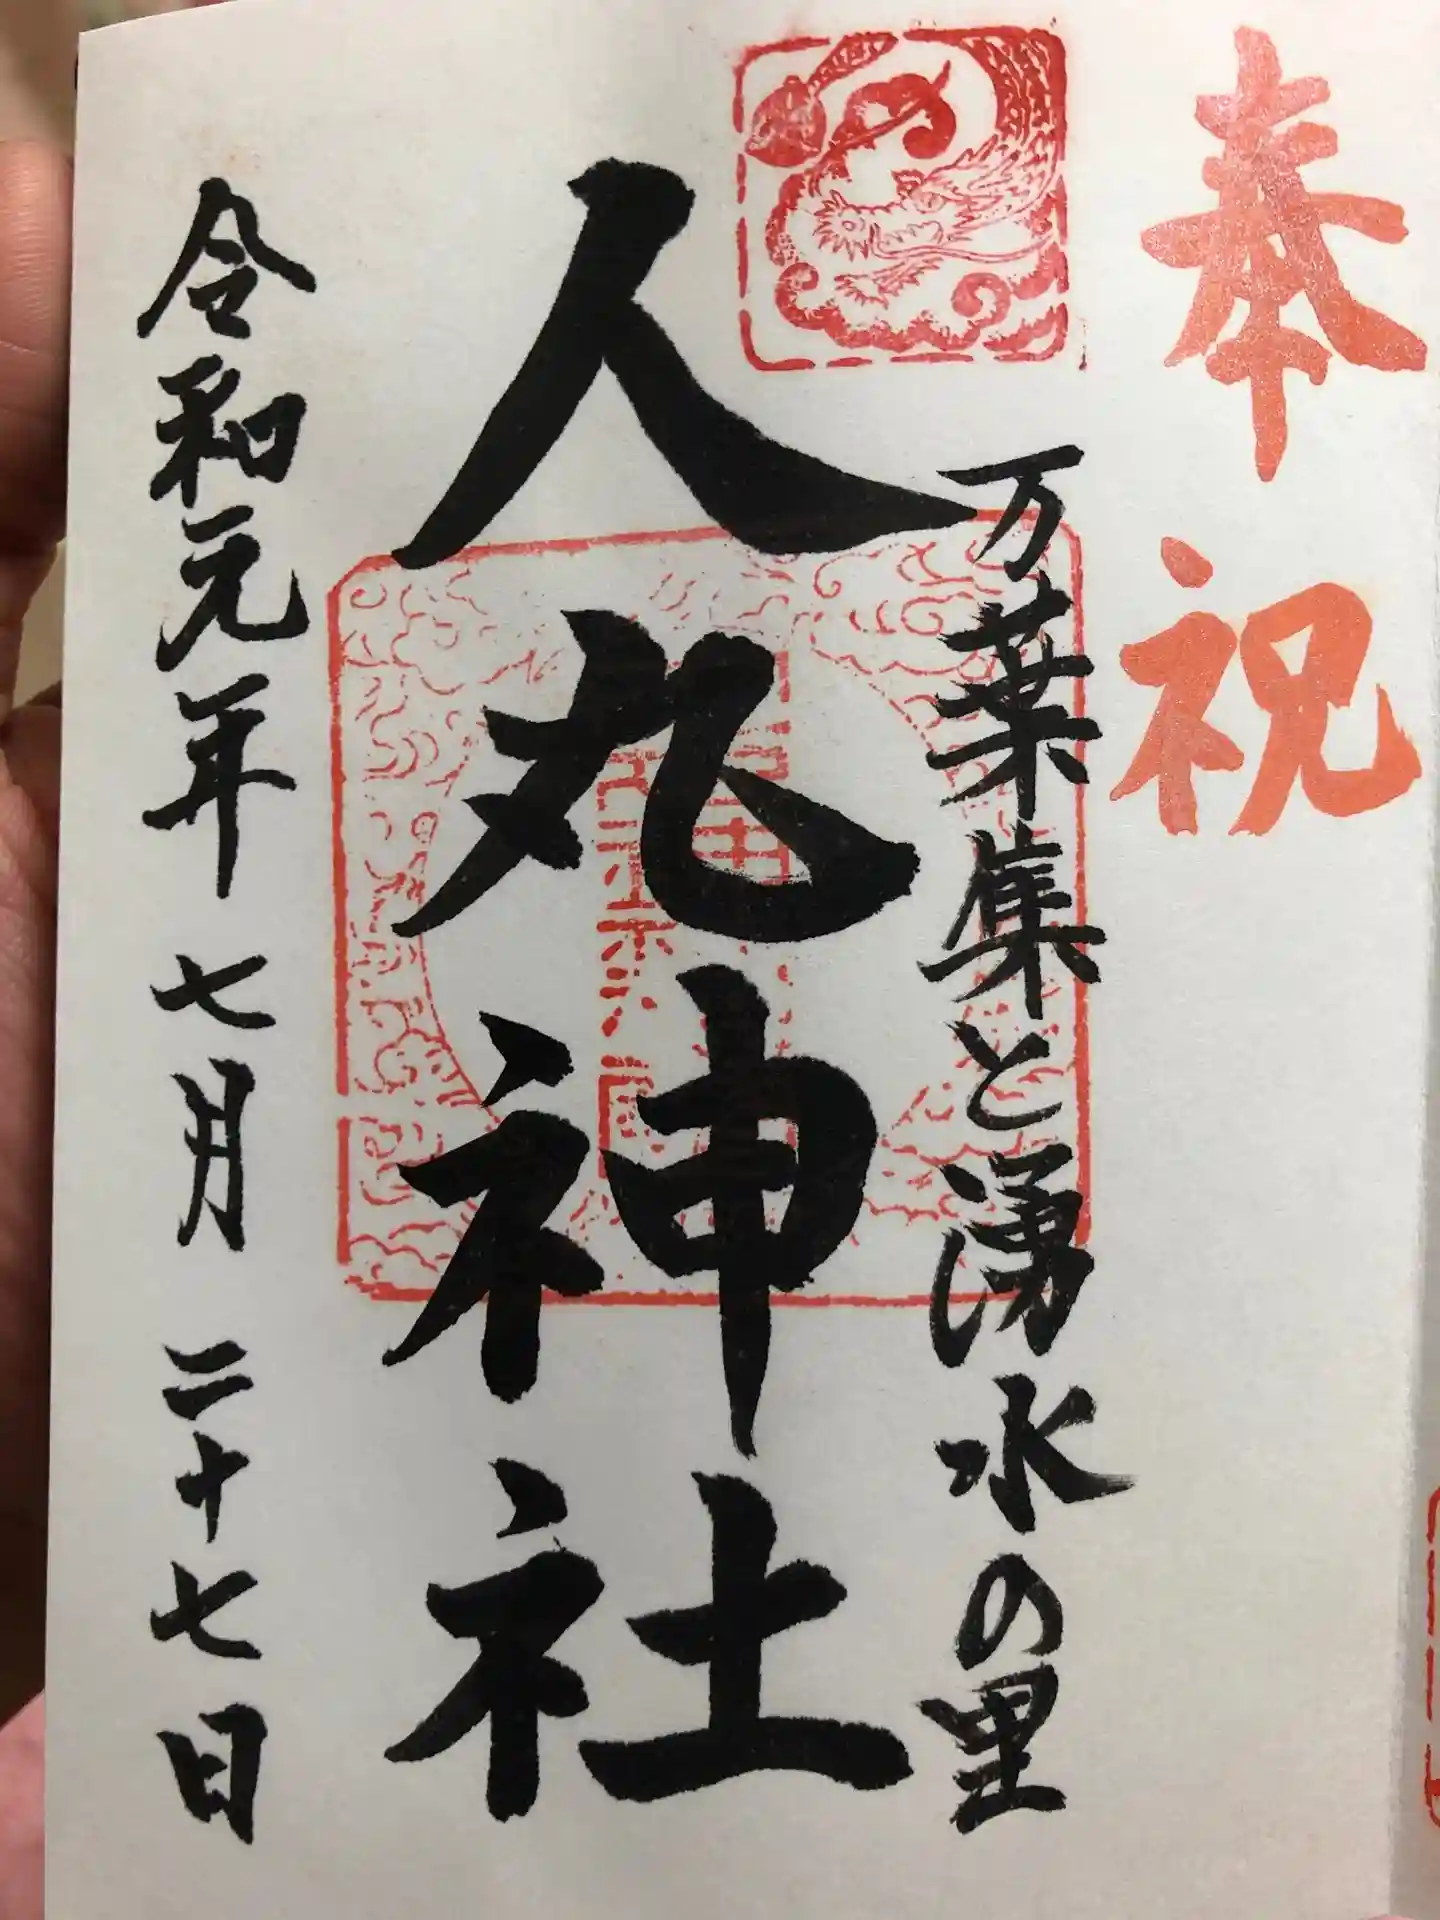 奉祝
万葉集と湧水の里
人丸神社
令和元年 七月 二十七日